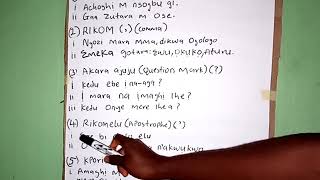 i Achoshi m nsogbu gi.
ii Gaa zutara m Ose.
(2) RIKOM (,) (comma)
i Ngozi mara mma, dikwa Ogologo
ii Emeka gotara: Ewu, Okuko, Aturu.
(3) Akara ajuju (Question Mark) (?)
i Kedu ebe i na-aga?
ii i mara na imaghi Ihe?
iii Kedu Onye mere Ihe a?
(4) Rikomelu (Apostrophe) (')
i bi elu
ii n'akwukwo
(5)
i Amaghi m